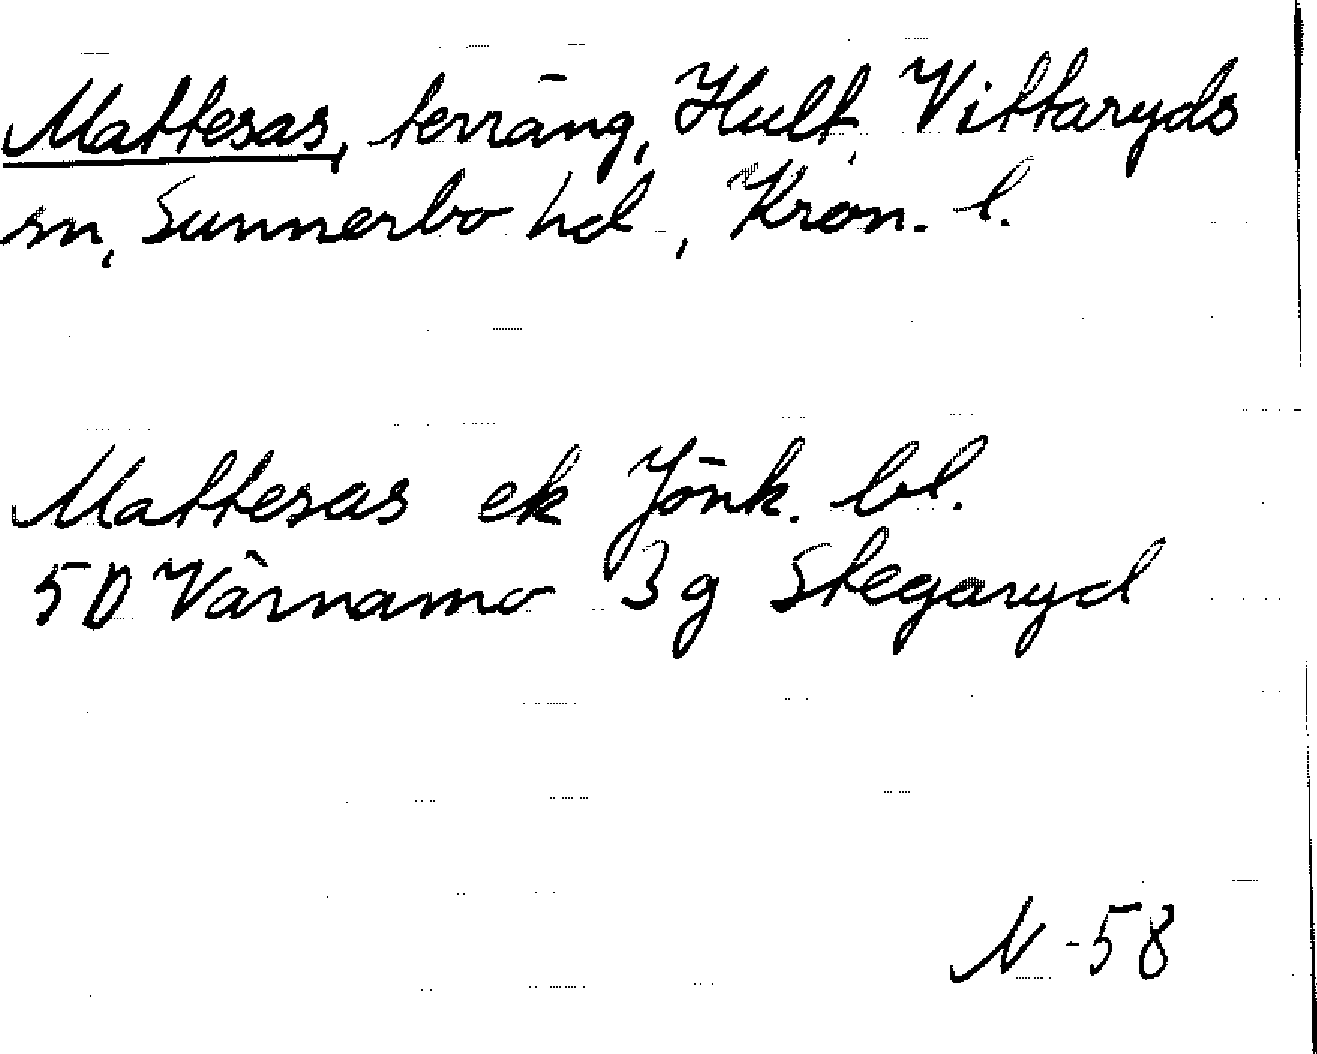 Mattesas, terräng, Hult, Vittaryds
sn, Sunnerbo hd, Kron. l.
Mattesas ek Jönk. bl.
5D Värnamo 3g Stegaryd
N-58